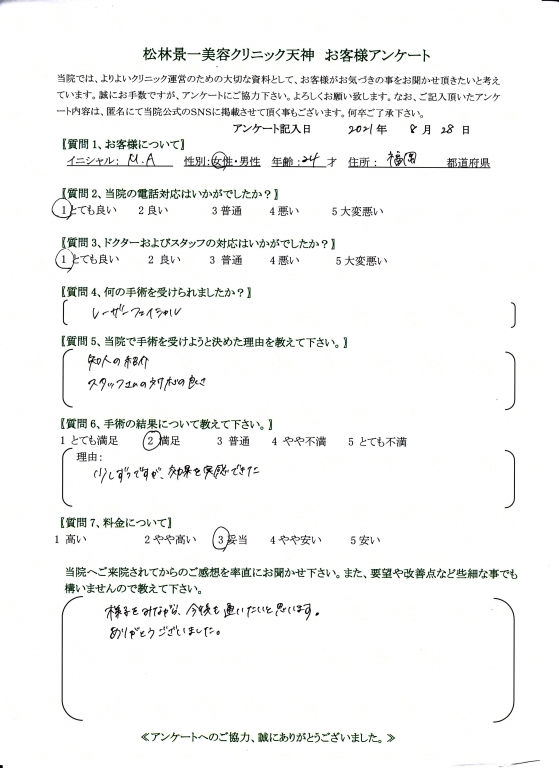 松林景一美容クリニック天神 お客様アンケート
当院では、よりよいクリニック運営のための大切な資料として、お客様がお気づきの事をお聞かせ頂きたいと考え
ています。誠にお手数ですが、アンケートにご協力下さい。よろしくお願い致します。なお、ご記入頂いたアンケ
ート内容は、匿名にて当院公式のSNSに掲載させて頂く事もございます。何卒ご了承下さい。
アンケート記入日 2021年 8月 28日
【質問1、お客様について】
イニシャル: M.A 性別:女性・男性 年齢:24才 住所: 福岡 都道府県
【質問2、当院の電話対応はいかがでしたか?】
1とても良い 2良い 3普通 4悪い 5大変悪い
【質問3、ドクターおよびスタッフの対応はいかがでしたか?】
1とても良い 2 良い 3 普通 4悪い 5大変悪い
【質問4、何の手術を受けられましたか?】
レーザーフェイシャル
【質問5、当院で手術を受けようと決めた理由を教えて下さい。】
知人の紹介
スタッフさんの対応の良さ
【質問6、手術の結果について教えて下さい。】
1 とても満足 2満足 3 普通 4 やや不満 5 とても不満
理由:
少しずつですが、効果を実感できた
【質問7、料金について】
1 高い 2やや高い 3妥当 4やや安い 5安い
当院へご来院されてからのご感想を率直にお聞かせ下さい。また、要望や改善点など些細な事でも
構いませんので教えて下さい。
様子をみながら、今後も通いたいと思います。
ありがとうございました。
≪アンケートへのご協力、誠にありがとうございました。≫